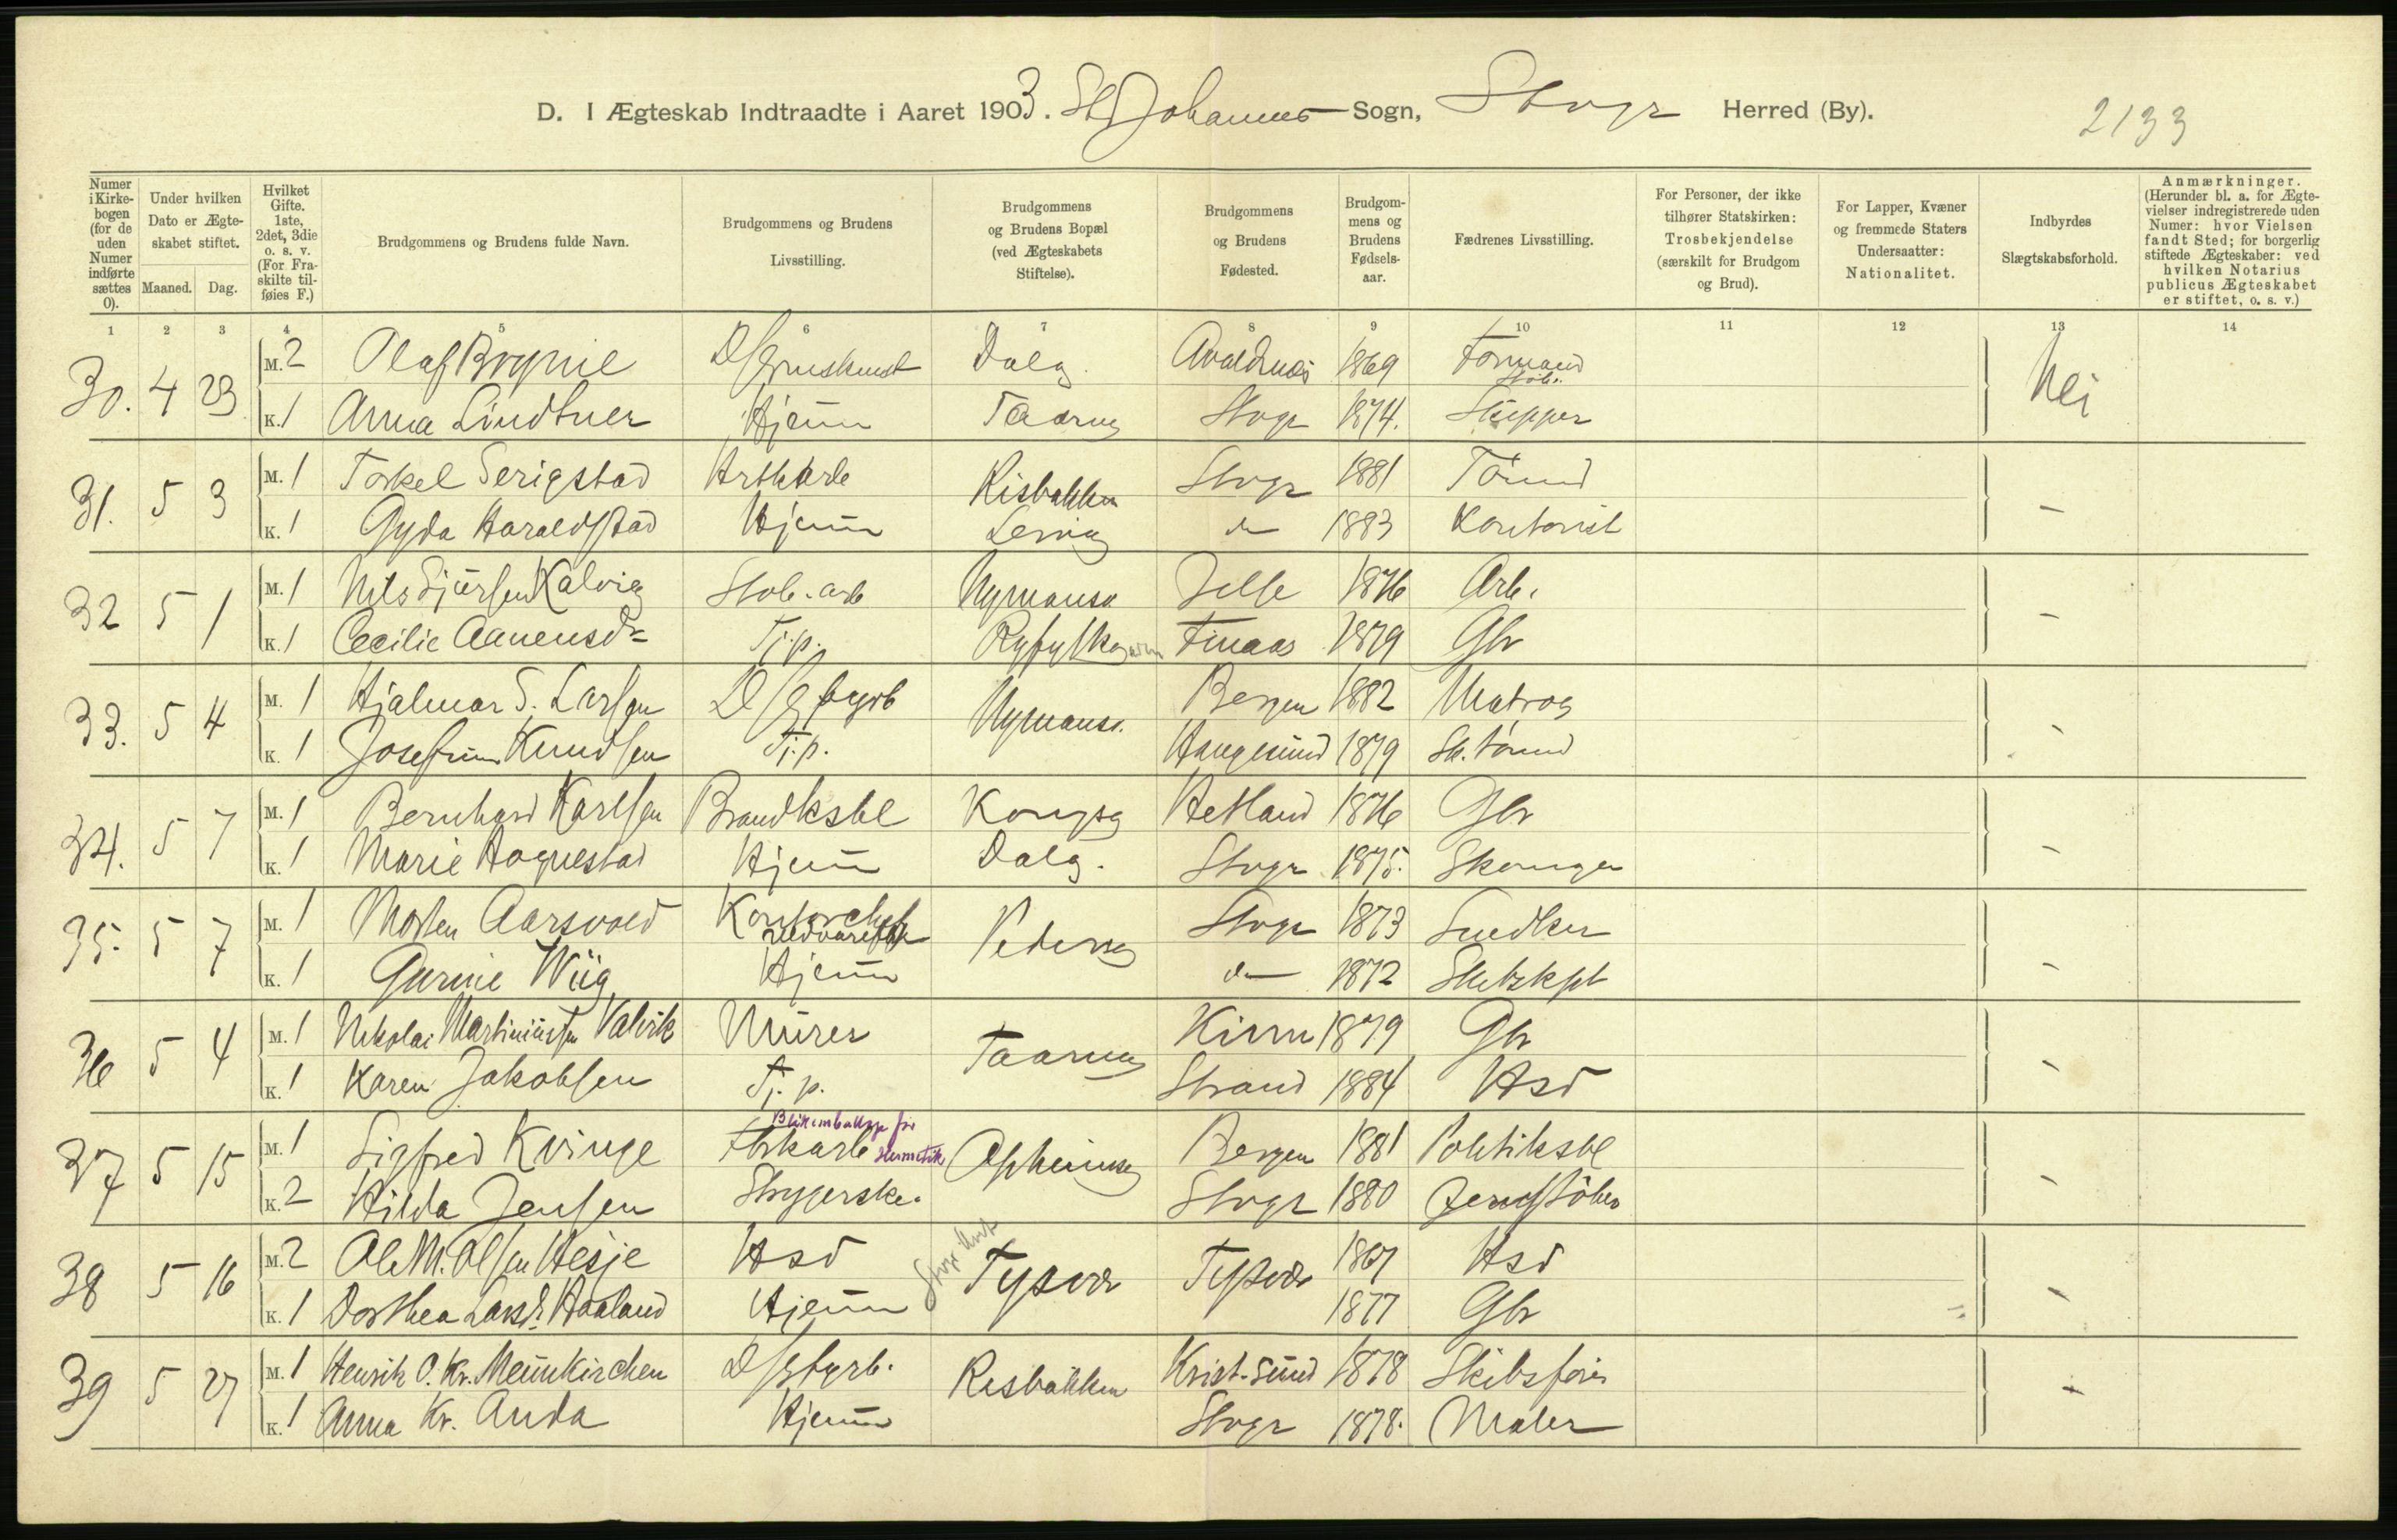 D. I Ægteskab Indtraadte i Aaret 1903. St Johannes Sogn, Stvgr Herred (By).
2133
Numer i Kirkebogen (for de uden Numer indførte sættes 0).
Under hvilken Dato er Ægteskabet stiftet.
Maaned. Dag.
Hvilket Gifte. 1ste, 2det, 3die o. s. v. (For Fraskilte tilføies F.)
Brudgommens og Brudens fulde Navn.
Brudgommens og Brudens Livsstilling.
Brudgommens og Brudens Bopæl (ved Ægteskabets Stiftelse).
Brudgommens og Brudens Fødested.
Brudgommens og Brudens Fødselsaar.
Fædrenes Livsstilling.
For Personer, der ikke tilhører Statskirken: Trosbekjendelse (særskilt for Brudgom og Brud).
For Lapper, Kvæner og fremmede Staters Undersaatter: Nationalitet.
Indbyrdes Slægtskabsforhold.
Anmærkninger. (Herunder bl. a. for Ægtevielser indregistrerede uden Numer: hvor Vielsen fandt Sted; for borgerlig stiftede Ægteskaber: ved hvilken Notarius publicus Ægteskabet er stiftet, o. s. v.)
1 2 3 4 5 6 7 8 9 10 11 12 13 14
30. 4 23 M. 2 Olaf Brynie Dalg. Avaldnæs 1869 Formand Nei
K. 1 Anna Lindtner Hjem Taarng Stvgr 1874. Skipper
31. 5 3 M. 1 Torkel Serigstad Risbakken Stvgr 1881 Tømd -
K. 1 Gyda Haraldstad Hjem Lervig do 1883 Kontorist
32 5 1 M. 1 Nils Sjursen Kalvig Støb. arb Nymansv Jelse 1876 Arb. -
K. 1 Cecilie Aanensdr Tj.p. Ryfylkeg Finaas 1879 Gbr
33. 5 4 M. 1 Hjalmar S. Larsen D/sg fyrb Nymansv. Bergen 1882 Matros -
K. 1 Josefine Knudsen Tj.p. Haugesund 1879 Sk. tømd
34. 5 7 M. 1 Bernhard Karlsen Brandkstbl Kongsg Hetland 1876 Gbr -
K. 1 Marie Hognestad Hjem Dalg. Stvgr 1875.
35. 5 7 M. 1 Morten Aarsvold Kontorchef Pedersg Stvgr 1873 Snedker -
K. 1 Gurine Wiig Hjem do 1872
36 5 4 M. 1 Nikolai Martiniussen Valvik Murer Taarng Kinn 1879 Gbr -
K. 1 Karen Jakobsen Tj.p. Strand 1884 Hsd
Blikemballage for
37 5 15 M. 1 Sigfred Kvinge Hermetik Bergen 1881 Politikstbl -
K. 2 Hilda Jensen Strygerske. Stvgr 1880 Jernstøber
38 5 16 M. 2 Ole M. Olsen Hesje Hsd Tysvær Tysvær 1867 Hsd -
K. 1 Dorthea Larsdr. Haaland Hjem 1877 Gbr
39 5 27 M. 1 Henrik O. Kr. Meinkirchen D/sg fyrb. Risbakken Krist.sund 1878 Skibsfører -
K. 1 Anna Kr. Anda Hjem Stvgr 1878. Maler